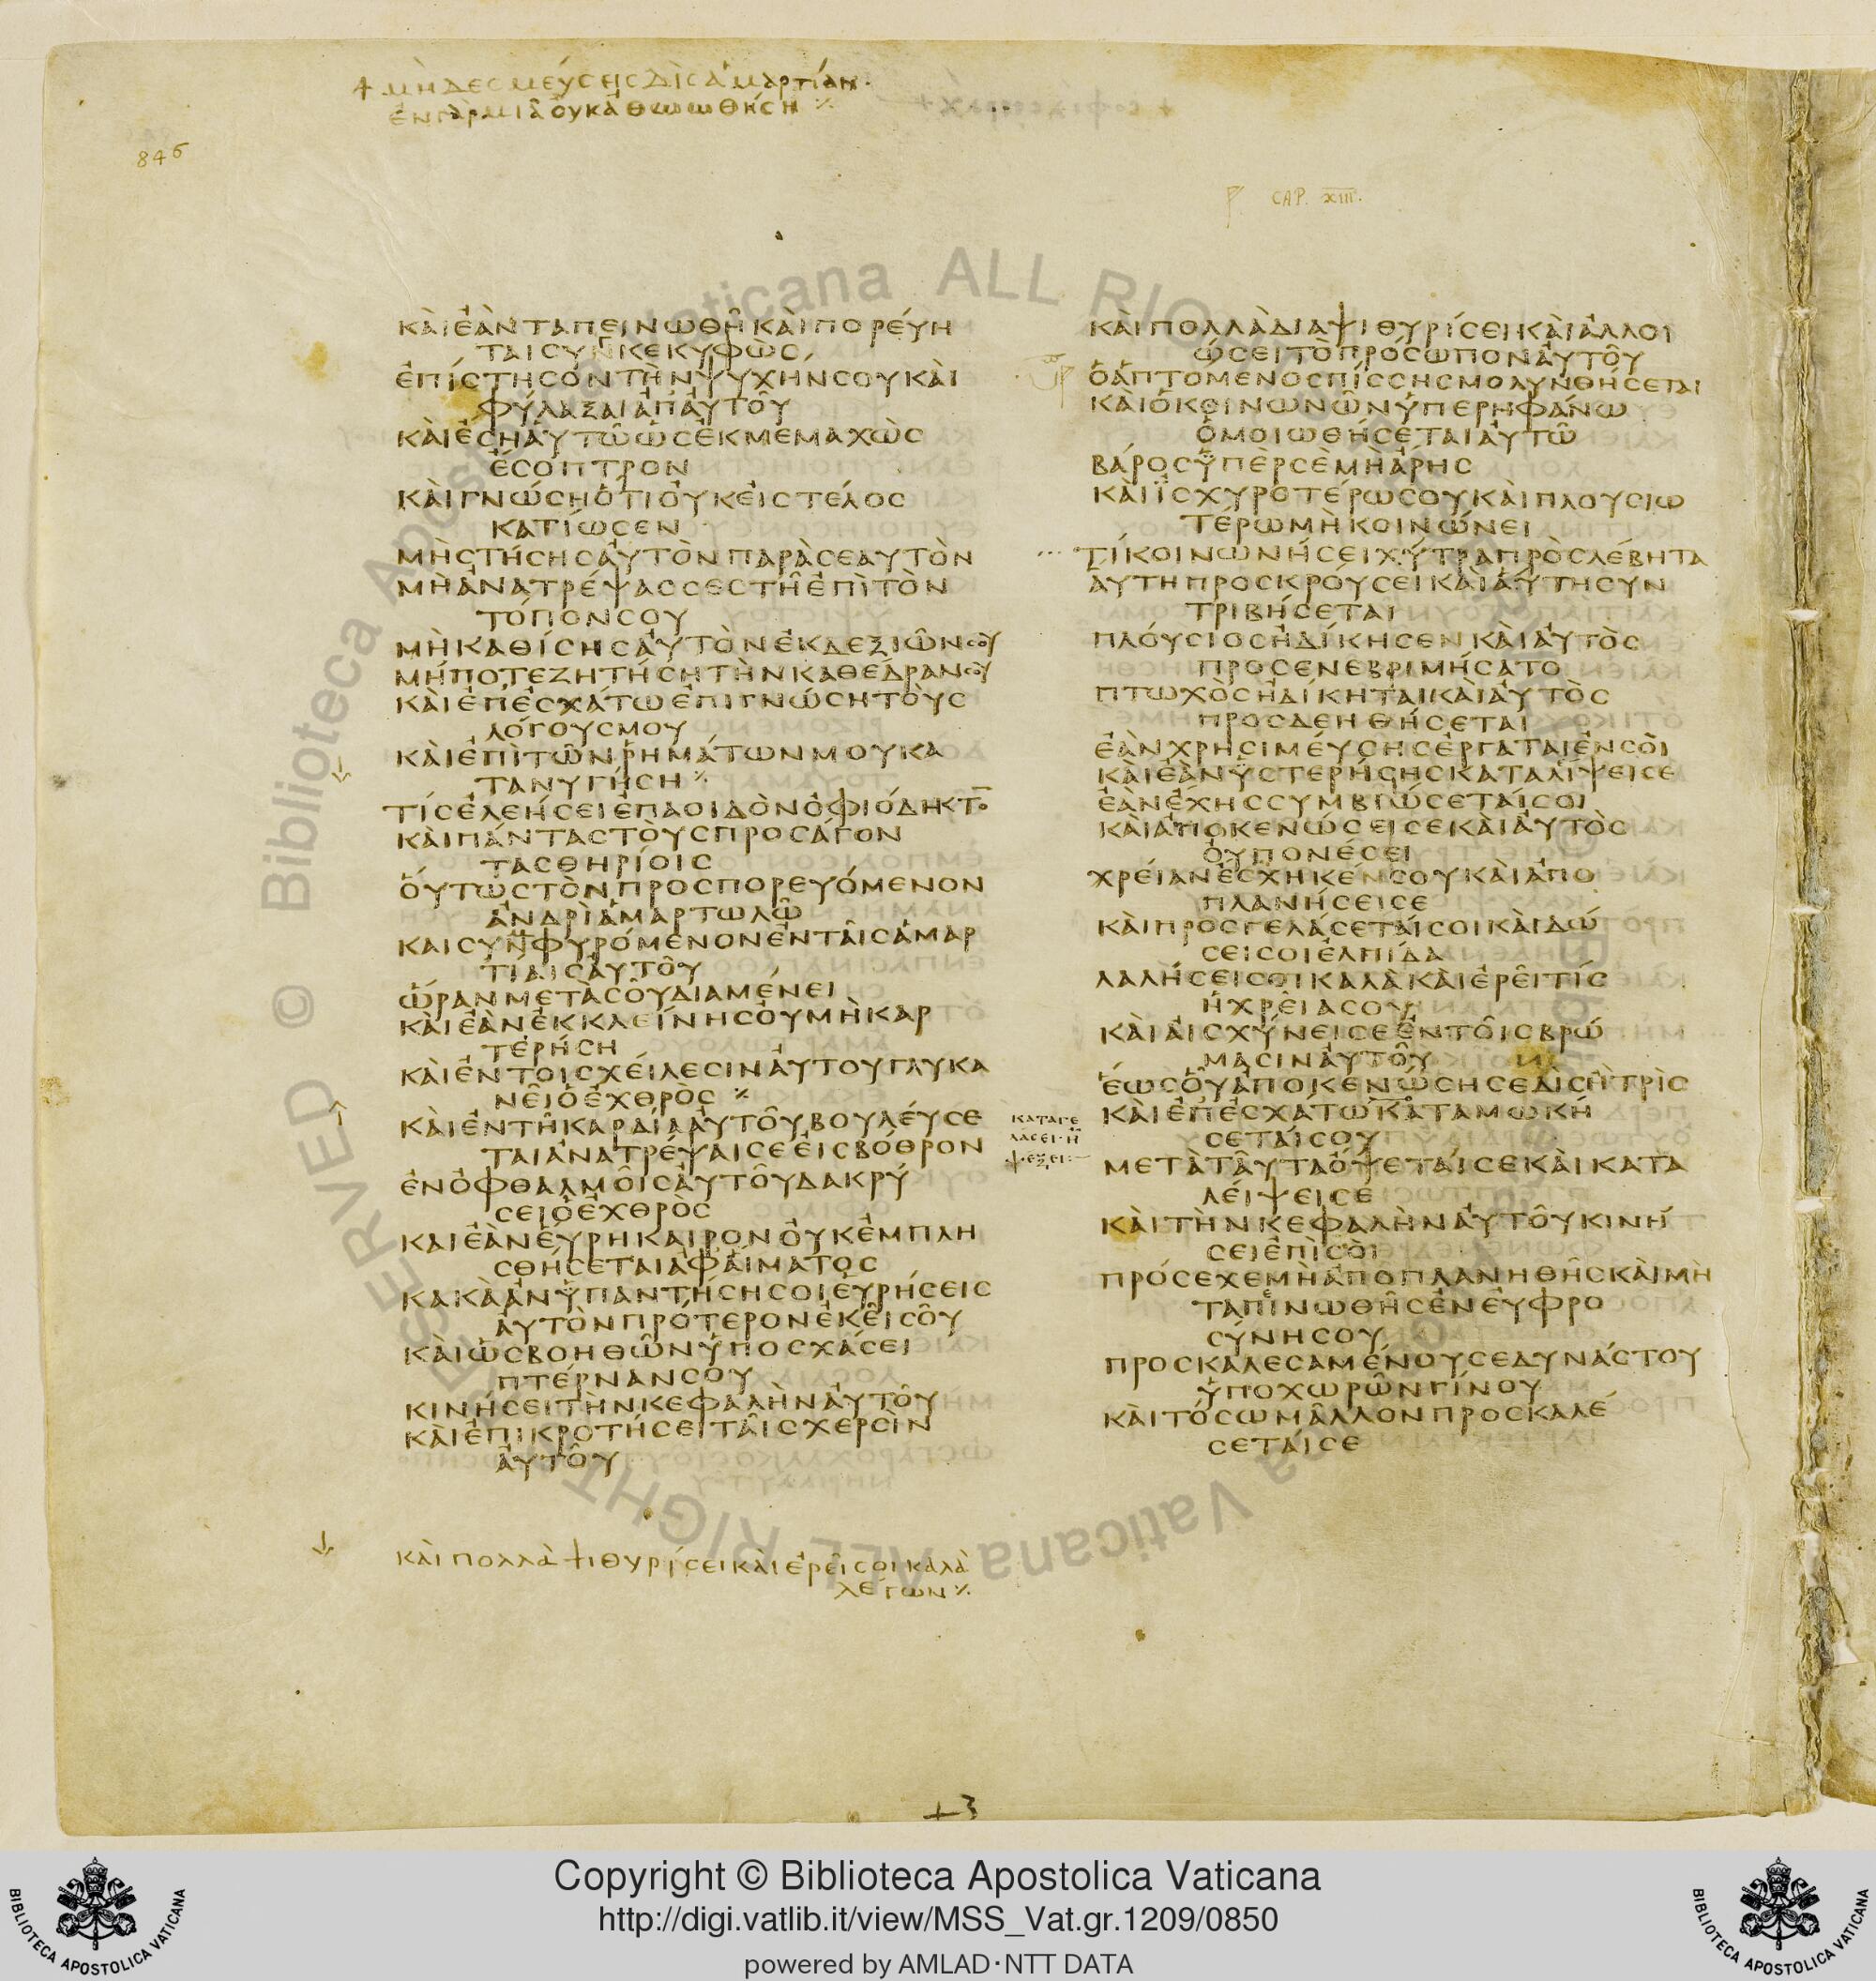 + μὴ δεσμεύσεις δὶς ἁμαρτίαν·
ἐν γὰρ μιᾷ οὐκ ἀθωωθήσῃ ⁒
846
CAP. XIII.
ΚΑΙ ΕΑΝ ΤΑΠΕΙΝΩΘΗ ΚΑΙ ΠΟΡΕΥΗ
ΤΑΙ ΣΥΝΚΕΚΥΦΩΣ
ΕΠΙΣΤΗΣΟΝ ΤΗΝ ΨΥΧΗΝ ΣΟΥ ΚΑΙ
ΦΥΛΑΞΑΙ ΑΠ ΑΥΤΟΥ
ΚΑΙ ΕΣΗ ΑΥΤΩ ΩΣ ΕΚΜΕΜΑΧΩΣ
ΕΣΟΠΤΡΟΝ
ΚΑΙ ΓΝΩΣΗ ΟΤΙ ΟΥΚ ΕΙΣ ΤΕΛΟΣ
ΚΑΤΙΩΣΕΝ
ΜΗ ΣΤΗΣΗΣ ΑΥΤΟΝ ΠΑΡΑ ΣΕΑΥΤΟΝ
ΜΗ ΑΝΑΤΡΕΨΑΣ ΣΕ ΣΤΗ ΕΠΙ ΤΟΝ
ΤΟΠΟΝ ΣΟΥ
ΜΗ ΚΑΘΙΣΗΣ ΑΥΤΟΝ ΕΚ ΔΕΞΙΩΝ ΣΟΥ
ΜΗΠΟΤΕ ΖΗΤΗΣΗ ΤΗΝ ΚΑΘΕΔΡΑΝ ΣΟΥ
ΚΑΙ ΕΠ ΕΣΧΑΤΩ ΕΠΙΓΝΩΣΗ ΤΟΥΣ
ΛΟΓΟΥΣ ΜΟΥ
ΚΑΙ ΕΠΙ ΤΩΝ ΡΗΜΑΤΩΝ ΜΟΥ ΚΑ
ΤΑΝΥΓΗΣΗ ⁒
ΤΙΣ ΕΛΕΗΣΕΙ ΕΠΑΟΙΔΟΝ ΟΦΙΟΔΗΚΤΟ̅
ΚΑΙ ΠΑΝΤΑΣ ΤΟΥΣ ΠΡΟΣΑΓΟΝ
ΤΑΣ ΘΗΡΙΟΙΣ
ΟΥΤΩΣ ΤΟΝ ΠΡΟΣΠΟΡΕΥΟΜΕΝΟΝ
ΑΝΔΡΙ ΑΜΑΡΤΩΛΩ
ΚΑΙ ΣΥΝΦΥΡΟΜΕΝΟΝ ΕΝ ΤΑΙΣ ΑΜΑΡ
ΤΙΑΙΣ ΑΥΤΟΥ
ΩΡΑΝ ΜΕΤΑ ΣΟΥ ΔΙΑΜΕΝΕΙ
ΚΑΙ ΕΑΝ ΕΚΚΛΕΙΝΗΣ ΟΥ ΜΗ ΚΑΡ
ΤΕΡΗΣΗ
ΚΑΙ ΕΝ ΤΟΙΣ ΧΕΙΛΕΣΙΝ ΑΥΤΟΥ ΓΛΥΚΑ
ΝΕΙ Ο ΕΧΘΡΟΣ ⁒
ΚΑΙ ΕΝ ΤΗ ΚΑΡΔΙΑ ΑΥΤΟΥ ΒΟΥΛΕΥΣΕ
ΤΑΙ ΑΝΑΤΡΕΨΑΙ ΣΕ ΕΙΣ ΒΟΘΡΟΝ
ΕΝ ΟΦΘΑΛΜΟΙΣ ΑΥΤΟΥ ΔΑΚΡΥ
ΣΕΙ Ο ΕΧΘΡΟΣ
ΚΑΙ ΕΑΝ ΕΥΡΗ ΚΑΙΡΟΝ ΟΥΚ ΕΜΠΛΗ
ΣΘΗΣΕΤΑΙ ΑΦ ΑΙΜΑΤΟΣ
ΚΑΚΑ ΑΝ ΥΠΑΝΤΗΣΗ ΣΟΙ ΕΥΡΗΣΕΙΣ
ΑΥΤΟΝ ΠΡΟΤΕΡΟΝ ΕΚΕΙ ΣΟΥ
ΚΑΙ ΩΣ ΒΟΗΘΩΝ ΥΠΟΣΧΑΣΕΙ
ΠΤΕΡΝΑΝ ΣΟΥ
ΚΙΝΗΣΕΙ ΤΗΝ ΚΕΦΑΛΗΝ ΑΥΤΟΥ
ΚΑΙ ΕΠΙΚΡΟΤΗΣΕΙ ΤΑΙΣ ΧΕΡΣΙΝ
ΑΥΤΟΥ
καὶ πολλὰ ψιθυρίσει καὶ ἐρεῖ σοι καλὰ
λέγων ⁒
ΚΑΙ ΠΟΛΛΑ ΔΙΑΨΙΘΥΡΙΣΕΙ ΚΑΙ ΑΛΛΟΙ
ΩΣΕΙ ΤΟ ΠΡΟΣΩΠΟΝ ΑΥΤΟΥ
Ο ΑΠΤΟΜΕΝΟΣ ΠΙΣΣΗΣ ΜΟΛΥΝΘΗΣΕΤΑΙ
ΚΑΙ Ο ΚΟΙΝΩΝΩΝ ΥΠΕΡΗΦΑΝΩ
ΟΜΟΙΩΘΗΣΕΤΑΙ ΑΥΤΩ
ΒΑΡΟΣ ΥΠΕΡ ΣΕ ΜΗ ΑΡΗΣ
ΚΑΙ ΙΣΧΥΡΟΤΕΡΩ ΣΟΥ ΚΑΙ ΠΛΟΥΣΙΩ
ΤΕΡΩ ΜΗ ΚΟΙΝΩΝΕΙ
ΤΙ ΚΟΙΝΩΝΗΣΕΙ ΧΥΤΡΑ ΠΡΟΣ ΛΕΒΗΤΑ
ΑΥΤΗ ΠΡΟΣΚΡΟΥΣΕΙ ΚΑΙ ΑΥΤΗ ΣΥΝ
ΤΡΙΒΗΣΕΤΑΙ
ΠΛΟΥΣΙΟΣ ΗΔΙΚΗΣΕΝ ΚΑΙ ΑΥΤΟΣ
ΠΡΟΣΕΝΕΒΡΙΜΗΣΑΤΟ
ΠΤΩΧΟΣ ΗΔΙΚΗΤΑΙ ΚΑΙ ΑΥΤΟΣ
ΠΡΟΣΔΕΗΘΗΣΕΤΑΙ
ΕΑΝ ΧΡΗΣΙΜΕΥΣΗΣ ΕΡΓΑΤΑΙ ΕΝ ΣΟΙ
ΚΑΙ ΕΑΝ ΥΣΤΕΡΗΣΗΣ ΚΑΤΑΛΙΨΕΙ ΣΕ
ΕΑΝ ΕΧΗΣ ΣΥΜΒΙΩΣΕΤΑΙ ΣΟΙ
ΚΑΙ ΑΠΟΚΕΝΩΣΕΙ ΣΕ ΚΑΙ ΑΥΤΟΣ
ΟΥ ΠΟΝΕΣΕΙ
ΧΡΕΙΑΝ ΕΣΧΗΚΕΝ ΣΟΥ ΚΑΙ ΑΠΟ
ΠΛΑΝΗΣΕΙ ΣΕ
ΚΑΙ ΠΡΟΣΓΕΛΑΣΕΤΑΙ ΣΟΙ ΚΑΙ ΔΩ
ΣΕΙ ΣΟΙ ΕΛΠΙΔΑ
ΛΑΛΗΣΕΙ ΣΟΙ ΚΑΛΑ ΚΑΙ ΕΡΕΙ ΤΙΣ
Η ΧΡΕΙΑ ΣΟΥ
ΚΑΙ ΑΙΣΧΥΝΕΙ ΣΕ ΕΝ ΤΟΙΣ ΒΡΩ
ΜΑΣΙΝ ΑΥΤΟΥ
ΕΩΣ ΟΥ ΑΠΟΚΕΝΩΣΗ ΣΕ ΔΙΣ Η ΤΡΙΣ
ΚΑΙ ΕΠ ΕΣΧΑΤΩ ΚΑΤΑΜΩΚΗ
ΣΕΤΑΙ ΣΟΥ
ΜΕΤΑ ΤΑΥΤΑ ΟΨΕΤΑΙ ΣΕ ΚΑΙ ΚΑΤΑ
ΛΕΙΨΕΙ ΣΕ
ΚΑΙ ΤΗΝ ΚΕΦΑΛΗΝ ΑΥΤΟΥ ΚΙΝΗ
ΣΕΙ ΕΠΙ ΣΟΙ
ΠΡΟΣΕΧΕ ΜΗ ΑΠΟΠΛΑΝΗΘΗΣ ΚΑΙ ΜΗ
ΤΑΠΙΝΩΘΗΣ ΕΝ ΕΥΦΡΟ
ΣΥΝΗ ΣΟΥ
ΠΡΟΣΚΑΛΕΣΑΜΕΝΟΥ ΣΕ ΔΥΝΑΣΤΟΥ
ΥΠΟΧΩΡΩΝ ΓΙΝΟΥ
ΚΑΙ ΤΟΣΩ ΜΑΛΛΟΝ ΠΡΟΣΚΑΛΕ
ΣΕΤΑΙ ΣΕ
ΚΑΤΑΓΕ
ΛΑΣΕΙ Η
ΨΕΞΕΙ
Copyright © Biblioteca Apostolica Vaticana
http://digi.vatlib.it/view/MSS_Vat.gr.1209/0850
powered by AMLAD·NTT DATA
BIBLIOTECA APOSTOLICA VATICANA
BIBLIOTECA APOSTOLICA VATICANA
© Biblioteca Apostolica Vaticana ALL RIGHTS RESERVED